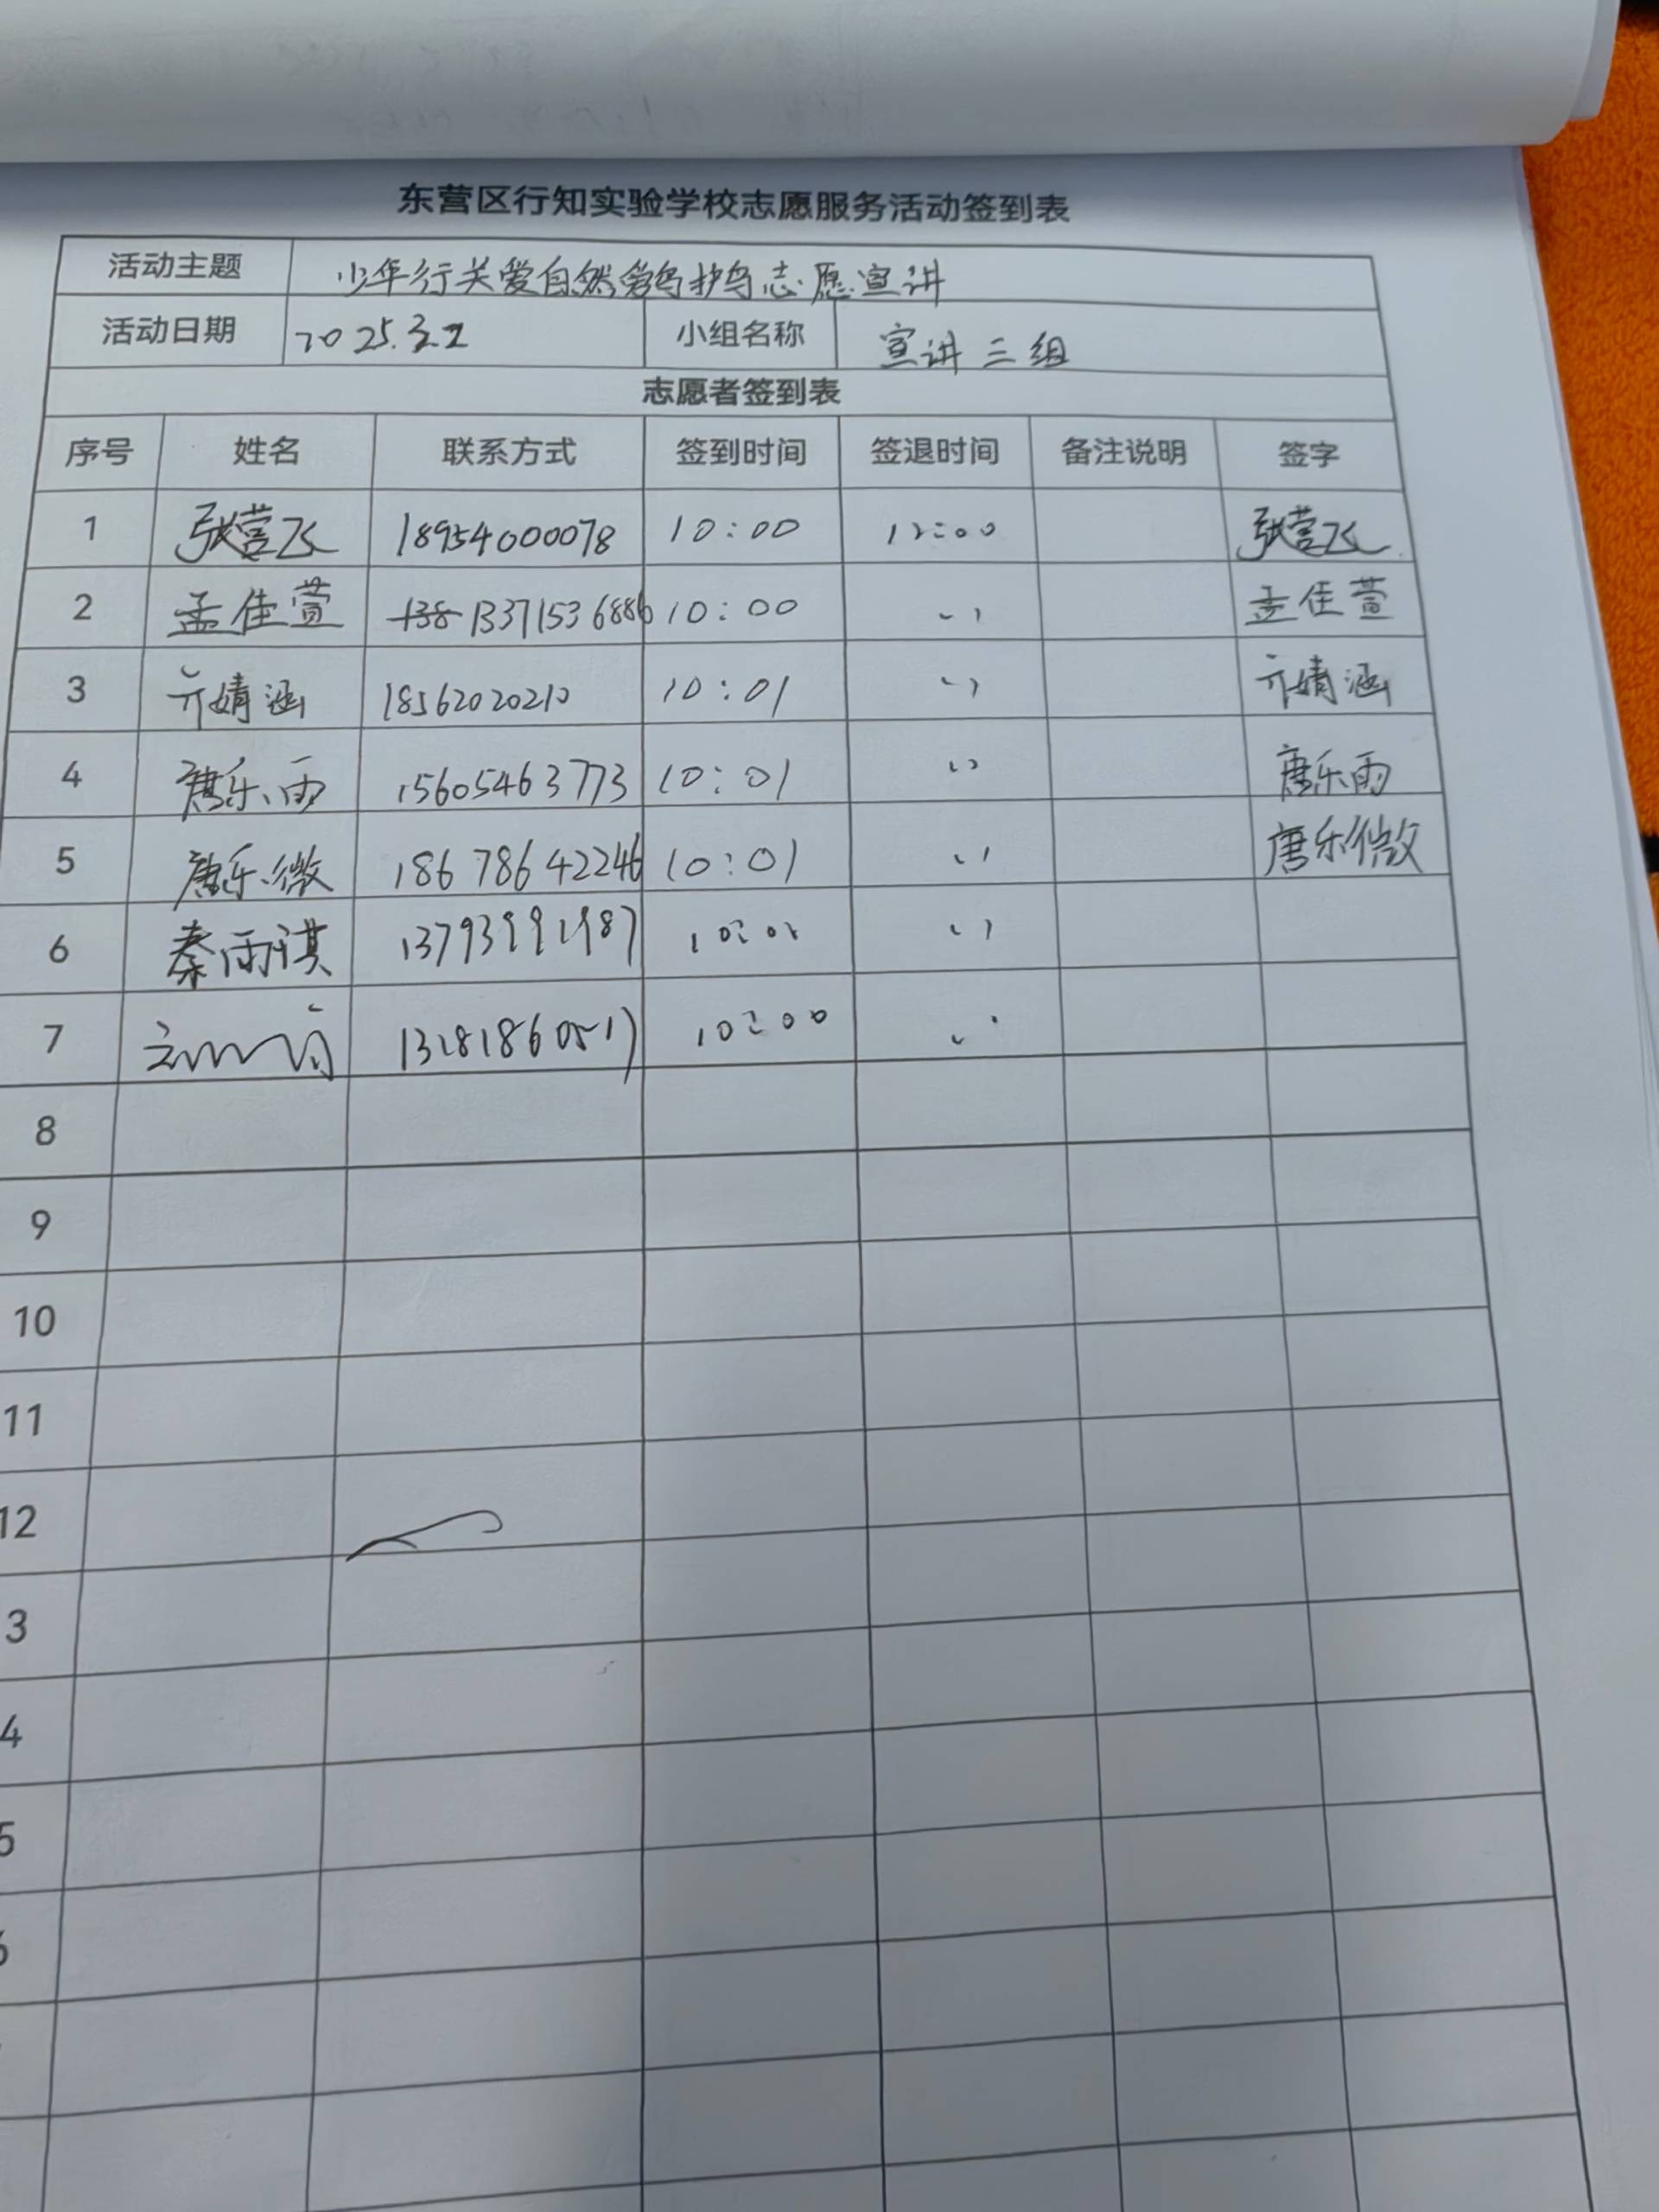 东营区行知实验学校志愿服务活动签到表
活动主题 少年行关爱自然爱鸟护鸟志愿宣讲
活动日期 2025.3.22 小组名称 宣讲三组
志愿者签到表
序号 姓名 联系方式 签到时间 签退时间 备注说明 签字
1 张营飞 18954000078 10:00 12:00 张营飞
2 孟佳萱 138 13371536886 10:00 〃 孟佳萱
3 亓婧涵 18562020210 10:01 〃 亓婧涵
4 唐乐雨 15605463773 10:01 〃 唐乐雨
5 唐乐微 18678642246 10:01 〃 唐乐微
6 秦雨淇 〃
7 10:00 〃
8
9
10
11
12
3
4
5